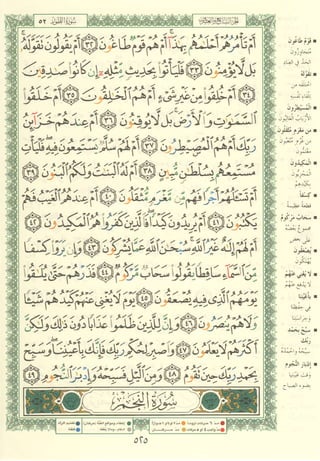 الجزء السابع والعشرون
سورة الطور ٥٢
أَمْ تَأْمُرُهُمْ أَحْلَٰمُهُم بِهَٰذَآ أَمْ هُمْ قَوْمٌ طَاغُونَ ٣٢ أَمْ يَقُولُونَ تَقَوَّلَهُۥ
بَل لَّا يُؤْمِنُونَ ٣٣ فَلْيَأْتُوا۟ بِحَدِيثٍ مِّثْلِهِۦٓ إِن كَانُوا۟ صَٰدِقِينَ
٣٤ أَمْ خُلِقُوا۟ مِنْ غَيْرِ شَىْءٍ أَمْ هُمُ ٱلْخَٰلِقُونَ ٣٥ أَمْ خَلَقُوا۟
ٱلسَّمَٰوَٰتِ وَٱلْأَرْضَ بَل لَّا يُوقِنُونَ ٣٦ أَمْ عِندَهُمْ خَزَآئِنُ
رَبِّكَ أَمْ هُمُ ٱلْمُصَۣيْطِرُونَ ٣٧ أَمْ لَهُمْ سُلَّمٌ يَسْتَمِعُونَ فِيهِ فَلْيَأْتِ
مُسْتَمِعُهُم بِسُلْطَٰنٍ مُّبِينٍ ٣٨ أَمْ لَهُ ٱلْبَنَٰتُ وَلَكُمُ ٱلْبَنُونَ ٣٩
أَمْ تَسْـَٔلُهُمْ أَجْرًا فَهُم مِّن مَّغْرَمٍ مُّثْقَلُونَ ٤٠ أَمْ عِندَهُمُ ٱلْغَيْبُ فَهُمْ
يَكْتُبُونَ ٤١ أَمْ يُرِيدُونَ كَيْدًا فَٱلَّذِينَ كَفَرُوا۟ هُمُ ٱلْمَكِيدُونَ ٤٢
أَمْ لَهُمْ إِلَٰهٌ غَيْرُ ٱللَّهِ سُبْحَٰنَ ٱللَّهِ عَمَّا يُشْرِكُونَ ٤٣ وَإِن يَرَوْا۟ كِسْفًا
مِّنَ ٱلسَّمَآءِ سَاقِطًا يَقُولُوا۟ سَحَابٌ مَّرْكُومٌ ٤٤ فَذَرْهُمْ حَتَّىٰ يُلَٰقُوا۟
يَوْمَهُمُ ٱلَّذِى فِيهِ يُصْعَقُونَ ٤٥ يَوْمَ لَا يُغْنِى عَنْهُمْ كَيْدُهُمْ شَيْـًٔا
وَلَا هُمْ يُنصَرُونَ ٤٦ وَإِنَّ لِلَّذِينَ ظَلَمُوا۟ عَذَابًا دُونَ ذَٰلِكَ وَلَٰكِنَّ
أَكْثَرَهُمْ لَا يَعْلَمُونَ ٤٧ وَٱصْبِرْ لِحُكْمِ رَبِّكَ فَإِنَّكَ بِأَعْيُنِنَا وَسَبِّحْ
بِحَمْدِ رَبِّكَ حِينَ تَقُومُ ٤٨ وَمِنَ ٱلَّيْلِ فَسَبِّحْهُ وَإِدْبَٰرَ ٱلنُّجُومِ ٤٩
سُورَةُ النَّجْمِ
٥٢٥
قوم طاغون
تقوله
المصيطرون
من مغرم مثقلون
المكيدون
كسفا
سحاب مركوم
يصعقون
لا يغني عنهم
بأعيننا
سبح بحمد ربك
إدبار النجوم